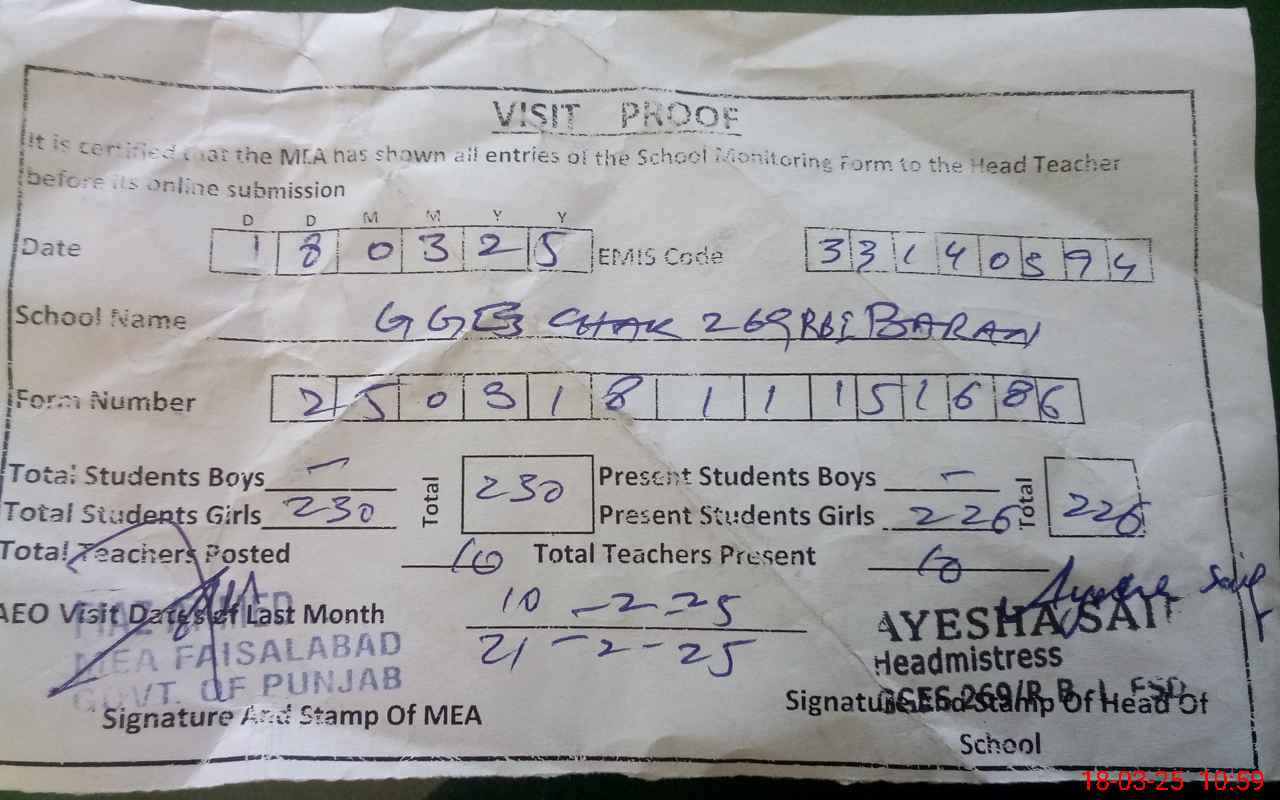 VISIT PROOF
It is certified that the MEA has shown all entries of the School Monitoring Form to the Head Teacher
before its online submission
D D M M Y Y
Date 1 8 0 3 2 5 EMIS Code 3 3 1 4 0 5 9 4
School Name GGES CHAK 269 RBI BARAN
Form Number 2 5 0 3 1 8 1 1 1 5 1 6 8 6
Total Students Boys — Total 230 Present Students Boys — Total 226
Total Students Girls 230 Present Students Girls 226
Total Teachers Posted 10 Total Teachers Present 10
AEO Visit Dates of Last Month 10-2-25
21-2-25
Ayesha Saif
AYESHA SAIF
Headmistress
GGES 269/R.B. I, FSD
MEA FAISALABAD
GOVT. OF PUNJAB
Signature And Stamp Of MEA
Signature And Stamp Of Head Of
School
18-03-25 10:59